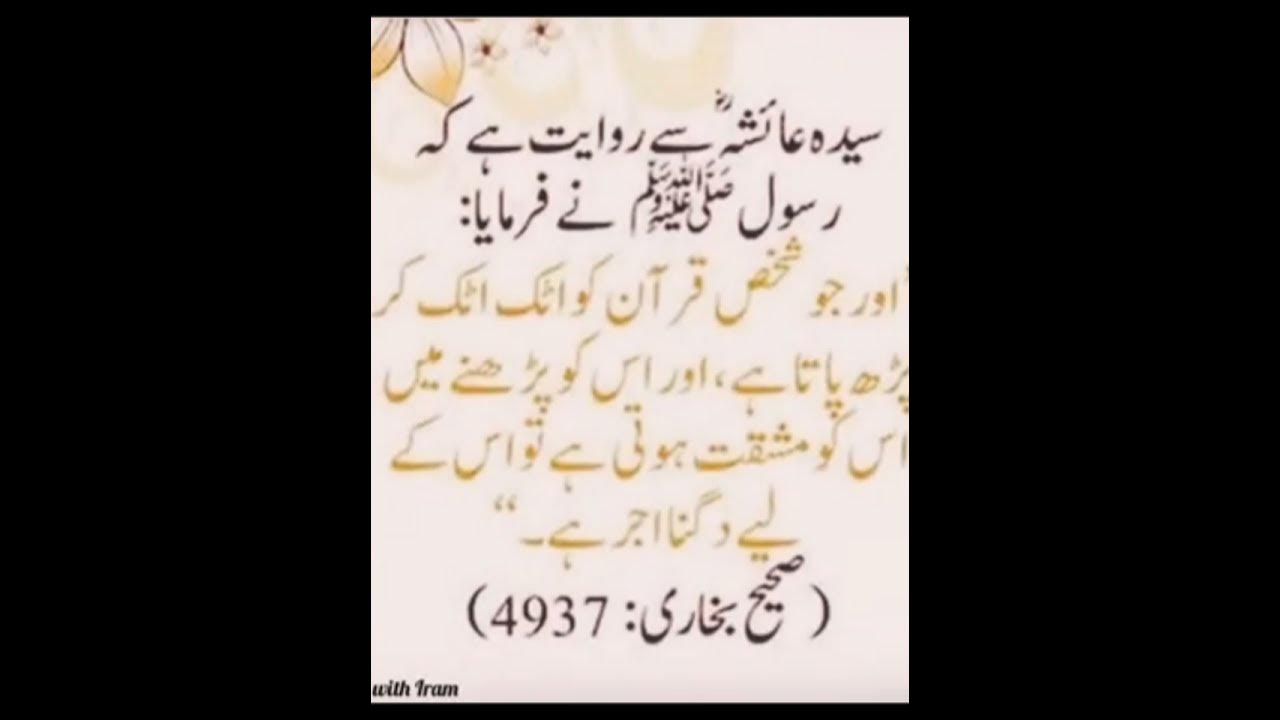 سیدہ عائشہؓ سے روایت ہے کہ
رسول ﷺ نے فرمایا:
اور جو شخص قرآن کو اٹک اٹک کر
پڑھ پاتا ہے، اور اس کو پڑھنے میں
اس کو مشقت ہوتی ہے تو اس کے
لیے دگنا اجر ہے۔“
(صحیح بخاری: 4937)
with Iram